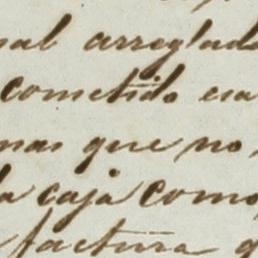 mal arreglado
cometido esa
mas que no
la caja como
factura q